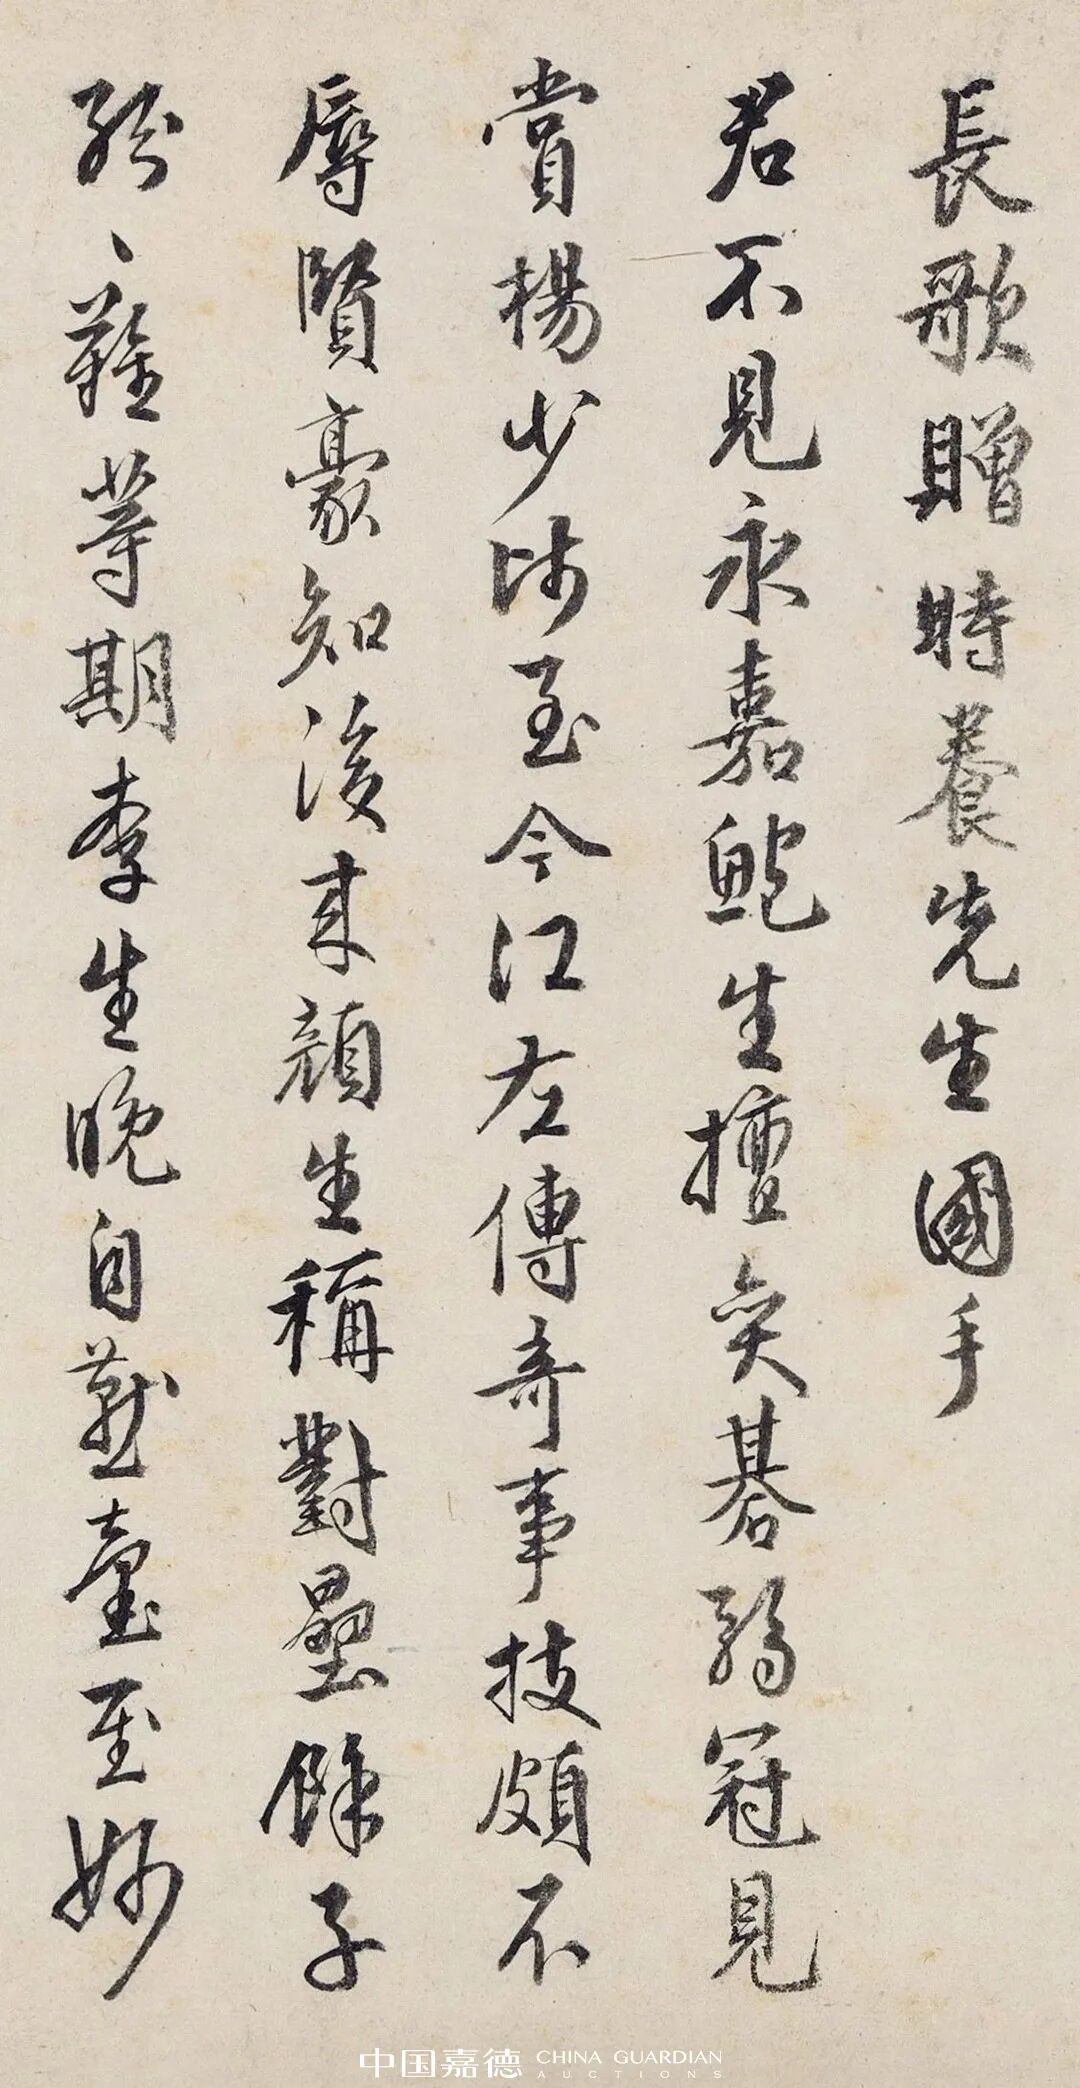 長歌贈時養先生國手
君不見永嘉鮑生擅奕碁弱冠見
賞楊少師至今江左傳奇事技頗不
辱賢豪知後来顔生稱對壘餘子
紛〻難等期李生晚自燕臺至妙
中国嘉德 CHINA GUARDIAN
AUCTIONS